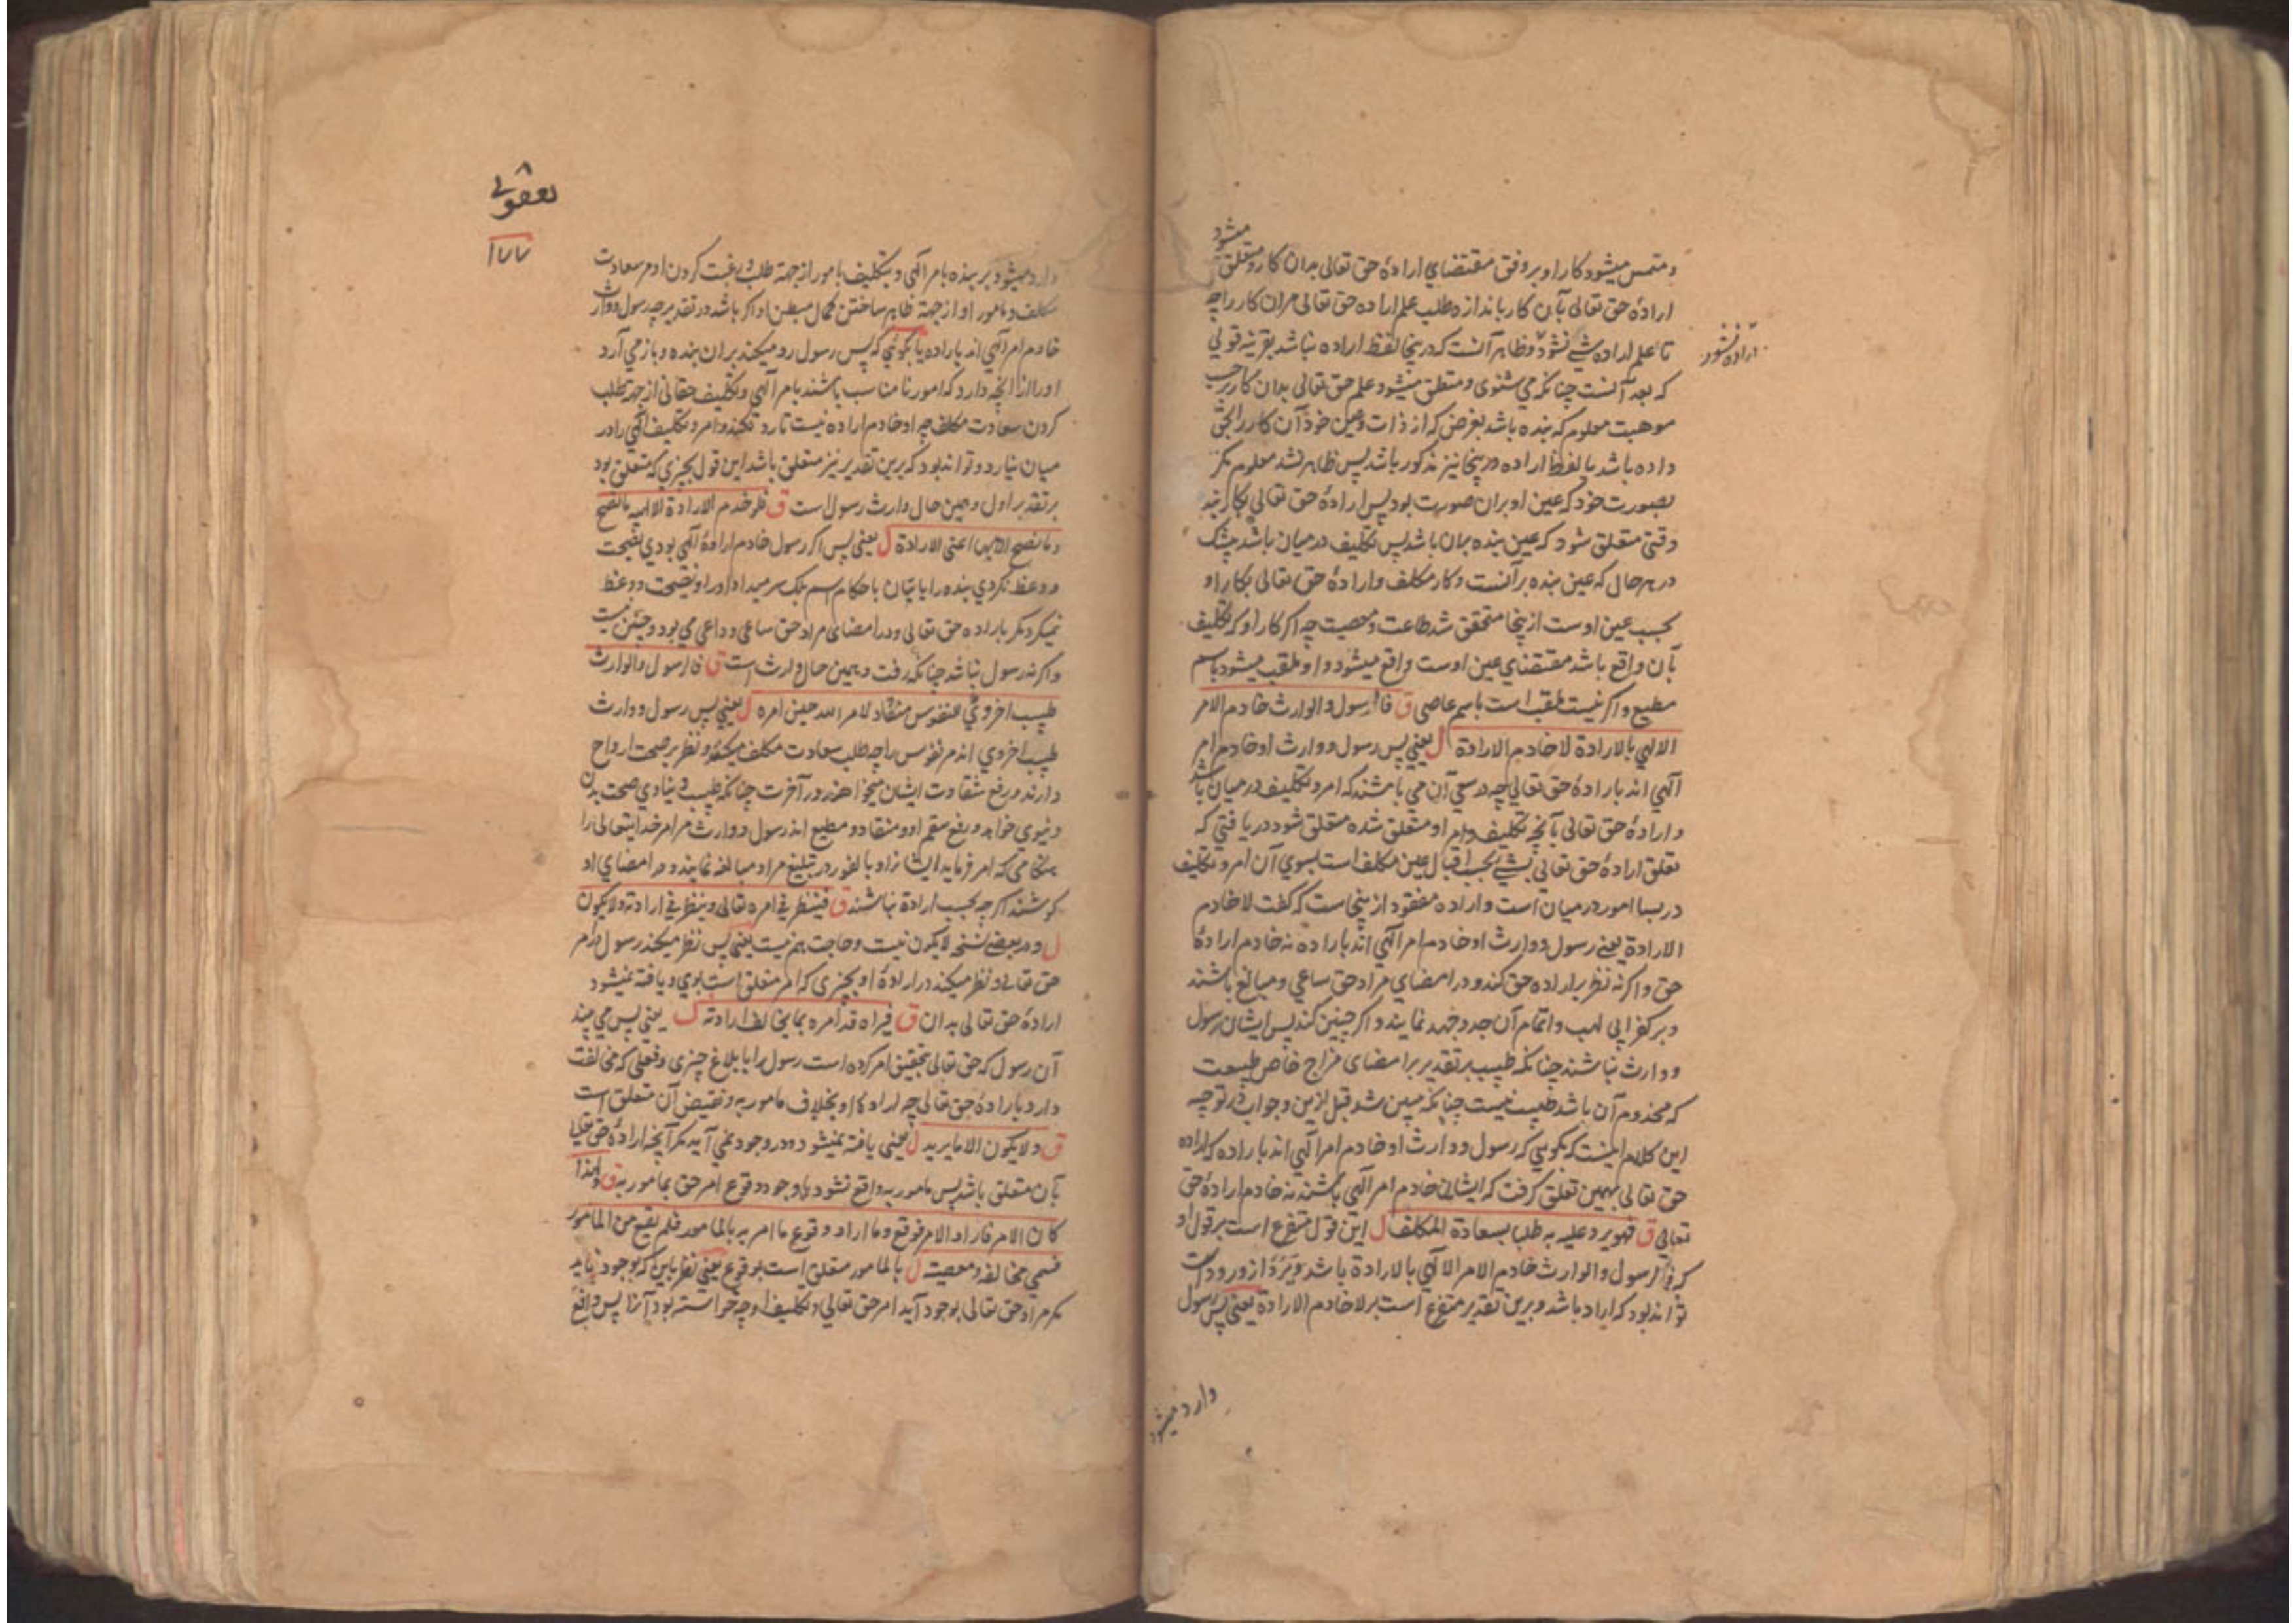 میشود
و متمس میشود کار او بر وفق مقتضای ارادهٔ حق تعالی بدان کار و متعلق
ارادهٔ حق تعالی بآن کار باندازه طلب علم اراده حق تعالی مران کار را چه
تا علم اراده شی نشود و ظاهر آنست که درینجا لفظ اراده نباشد بقرینه قولی
اراده نشود
که بعد آنست چنانکه می شنوی و متعلق میشود علم حق تعالی بدان کار بر حسب
موهبت معلوم که بنده باشد بغرض که از ذات و عین خود آن کار را بحق
داده باشد یا لفظ اراده درینجا نیز مذکور باشد پس ظاهر نشد معلوم مگر
بصورت خود که عین او بران صورت بود پس ارادهٔ حق تعالی بکار بنده
وقتی متعلق شود که عین بنده بران باشد پس تکلیف در میان باشد چه شک
در هر حال که عین بنده بر آنست و کار مکلف و ارادهٔ حق تعالی بکار او
بحسب عین اوست از ینجا متحقق شد طاعت و معصیت چه اگر کار او که تکلیف
بآن واقع باشد مقتضای عین اوست واقع میشود و او ملقب میشود باسم
مطیع و اگر نیست ملقب است باسم عاصی ق فالرسول والوارث خادم الامر
الالهی بالارادة لا خادم الارادة ل یعنی پس رسول و وارث او خادم امر
الهی اند بارادهٔ حق تعالی چه در سعی آن می باشند که امر و تکلیف در میان باشد
و ارادهٔ حق تعالی بآنچه تکلیف و امر او متعلق شده متعلق شود در یافتی که
تعلق ارادهٔ حق تعالی بشی بحسب اقبال عین مکلف است بسوی آن امر و تکلیف
در بسا امور در میان است و اراده مفقود از ینجاست که گفت لا خادم
الارادة یعنی رسول و وارث او خادم امر الهی اند باراده نه خادم ارادهٔ
حق و اگر نه نظر باراده حق کند و در امضای مراد حق ساعی و مبالغ باشند
و بر کفر ابی لهب و اتمام آن جد و جهد نمایند و اگر چنین کند پس ایشان رسول
و وارث نباشند چنانکه طبیب بر تقدیر بر امضای مزاج خاص طبیعت
که مخدوم آن باشد طبیب نیست چنانکه مبین شد قبل ازین و جواب در توجیه
این کلام اینست که گویی که رسول و وارث او خادم امر الهی اند باراده که اراده
حق تعالی بهمین تعلق گرفت که ایشان خادم امر الهی باشند نه خادم ارادهٔ حق
تعالی ق فهو یرد علیه به طلبا بسعادة المکلف ل این قول متفرع است بر قول او
که فالرسول والوارث خادم الامر الالهی بالارادة باشد و یرد از ورود است
تواند بود که اراد باشد و برین تقدیر متفرع است بر لا خادم الارادة یعنی پس رسول
وارد میشود
یعقوبی
۱۷۷
وارد میشود بر بنده بامر الهی و بتکلیف بامور از جهة طلب و رغبت کردن او مر سعادت
مکلف و مامور او از جهة ظاهر ساختن کمال مبطن او اگر باشد در تقدیر چه رسول و وارث
خادم امر الهی اند باراده یا بگوئی که پس رسول رد میکند بران بنده و باز می آرد
او را از آنچه دارد که امور نا مناسب باشند بامر الهی و تکلیف حقانی از جهة طلب
کردن سعادت مکلف چه او خادم اراده نیست تا رد نکند و امر و تکلیف الهی را در
میان نیارد و تواند بود که برین تقدیر نیز متعلق باشد این قول بچیزی که متعلق بود
بر تقدیر اول و همین حال وارث رسول است ق فلو خدم الارادة الالهیه ما نصح
و ما نصح الا بها اعنی الارادة ل یعنی پس اگر رسول خادم ارادهٔ الهی بودی نصیحت
و وعظ نکردی بنده را باتیان باحکام اسم بلک سر میداد او را و نصیحت و وعظ
نمیکرد مگر باراده حق تعالی و در امضای مراد حق ساعی و داعی می بود و چنین نیست
و اگر نه رسول نباشد چنانکه رفت و همین حال وارث است ق فالرسول والوارث
طبیب اخروی للنفوس منقاد لامر الله حین امره ل یعنی پس رسول و وارث
طبیب اخروی اند مر نفوس را چه طلب سعادت مکلف میکنند و نظر بر صحت ارواح
دارند و رفع شقاوت ایشان میخواهند در آخرت چنانکه طبیب دنیاوی صحت بدن
دنیوی خواهد و رفع سقم او و منقاد و مطیع اند رسول و وارث مر امر خدایتعالی را
هنگامی که امر فرماید ایشانرا و بالفور در تبلیغ مراد مبالغه نمایند و در امضای او
کوشند اگر چه بحسب ارادة نباشند ق فینظر فی امره تعالی و ینظر فی ارادته ولا یکون
ل و در بعضی نسخه لا یکون نیست و حاجت هم نیست یعنی پس نظر میکند رسول در امر
حق تعالی و نظر میکند در ارادهٔ او بچیزی که امر متعلق است بوی و یافته نمیشود
ارادهٔ حق تعالی بدان ق فیراه قد امره بما یخالف ارادته ل یعنی پس می بیند
آن رسول که حق تعالی بتحقیق امر کرده است رسول را بابلاغ چیزی و فعلی که مخالفت
دارد بارادهٔ حق تعالی چه ارادهٔ او بخلاف مامور به و نقیض آن متعلق است
ق و لا یکون الا ما یرید ل یعنی یافته نمیشود و در وجود نمی آید مگر آنچه ارادهٔ حق تعالی
بآن متعلق باشد پس مامور به واقع نشود با وجود وقوع امر حق بمامور به ق و لهذا
کان الامر فاراد الامر فوقع و ما اراد وقوع ما امر به بالمامور فلم یقع من المامور
فسمی مخالفة و معصیة ل بالمامور متعلق است بوقوع یعنی نظر باین که بوجود نیاید
مگر مراد حق تعالی بوجود آید امر حق تعالی و تکلیف او چه خواسته بود آنرا پس واقع